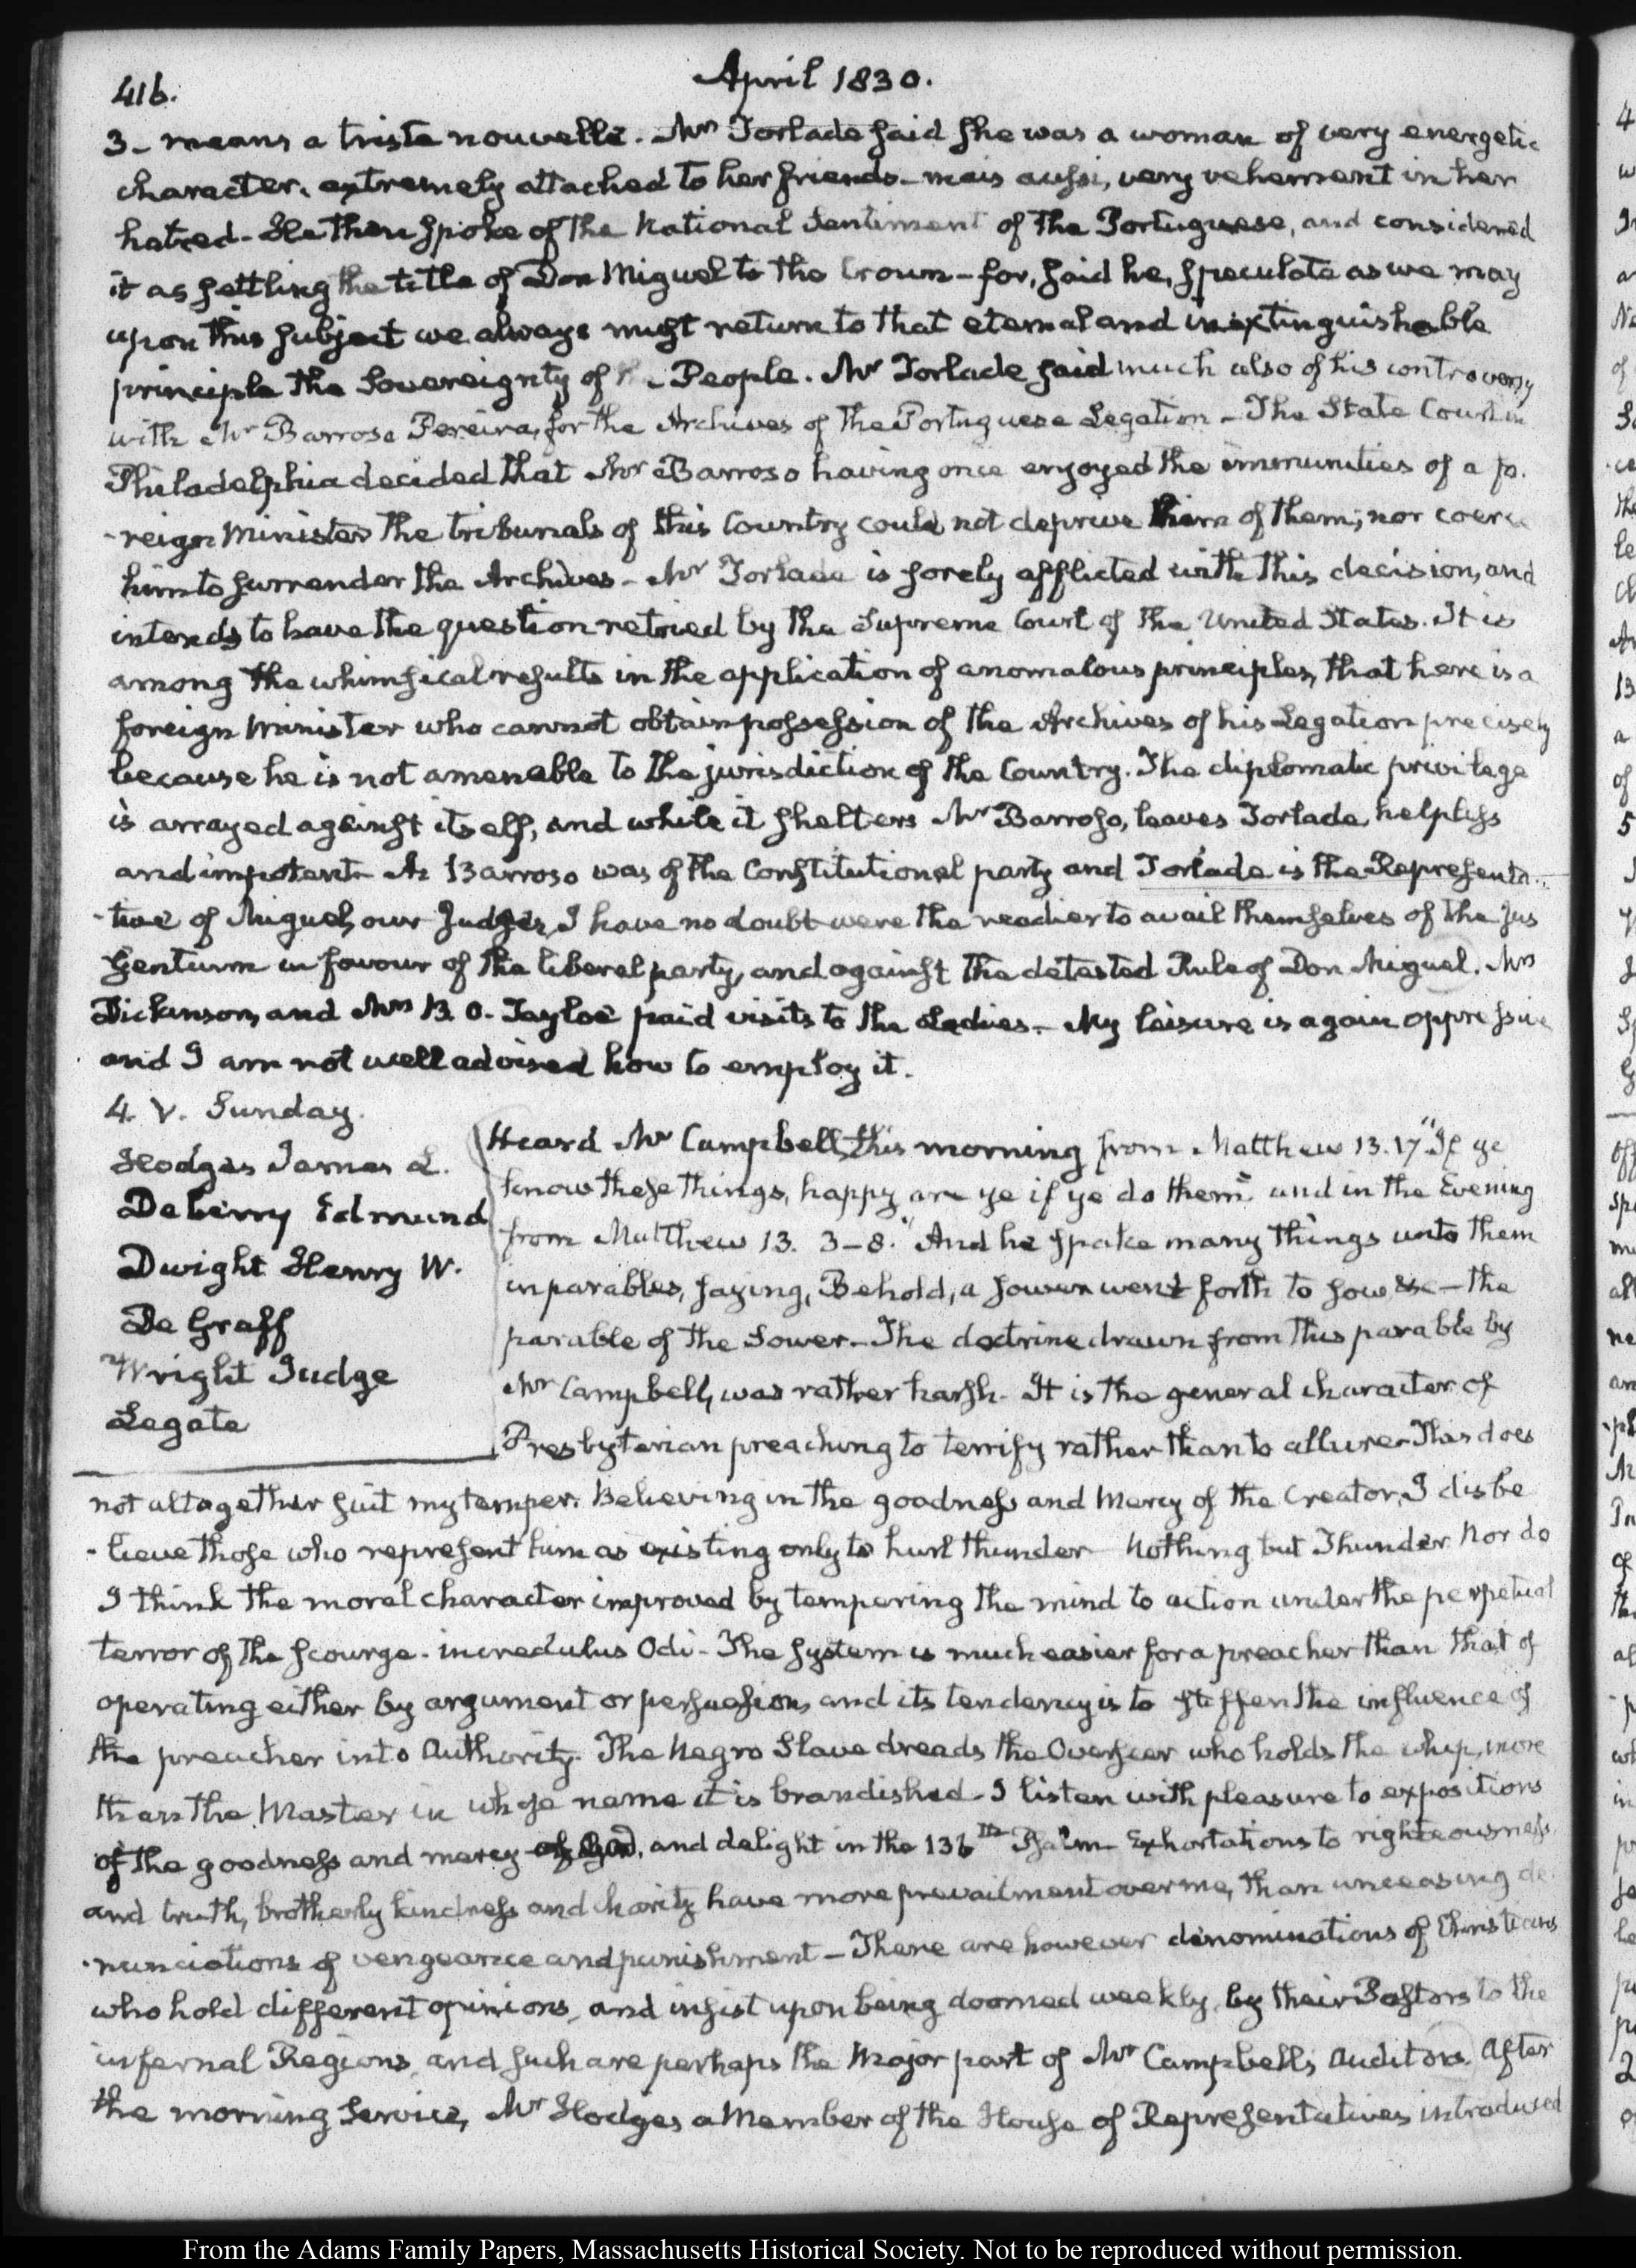 416.
April 1830.
3 – means a triste nouvelle. Mr Torlade said she was a woman of very energetic
character, extremely attached to her friends – mais aussi, very vehement in her
hatred – He then spoke of the National Sentiment of the Portuguese, and considered
it as settling the title of Don Miguel to the Crown – for, said he, speculate as we may
upon this subject we always must return to that eternal and inextinguishable
principle the Sovereignty of the People. Mr Torlade said much also of his controversy
with Mr Barroso Pereira, for the Archives of the Portuguese Legation – The State Court in
Philadelphia decided that Mr Barroso having once enjoyed the immunities of a fo-
-reign Minister the tribunals of this Country could not deprive him of them; nor coerce
him to surrender the Archives – Mr Torlade is sorely afflicted with this decision, and
intends to have the question retried by the Supreme Court of the United States. It is
among the whimsical results in the application of anomalous principles, that here is a
foreign Minister who cannot obtain possession of the Archives of his Legation precisely
because he is not amenable to the jurisdiction of the Country. The diplomatic privilege
is arrayed against itself, and while it shelters Mr Barroso, leaves Torlade, helpless
and impotent – As Barroso was of the Constitutional party and Torlade is the Representa-
-tive of Miguel, our Judges, I have no doubt were the readier to avail themselves of the jus
Gentium in favour of the liberal party, and against the detested Rule of Don Miguel. Mrs
Dickinson, and Mrs B. O. Tayloe paid visits to the Ladies. – My leisure is again oppressive
and I am not well advised how to employ it.
4. V. Sunday.
Hodges James L.
Deberry Edmund
Dwight Henry W.
De Graff
Wright Judge
Legate
Heard Mr Campbell, this morning from Matthew 13. 17 "If ye
know these things, happy are ye if ye do them" and in the Evening
from Matthew 13. 3–8. "And he spake many things unto them
in parables, saying, Behold, a sower went forth to sow &c – the
parable of the Sower – The doctrine drawn from this parable by
Mr Campbell, was rather harsh – It is the general character of
Presbyterian preaching to terrify rather than to allure – This does
not altogether suit my temper. Believing in the goodness and Mercy of the Creator, I disbe
-lieve those who represent him as existing only to hurl thunder – Nothing but Thunder. Nor do
I think the moral character improved by tempering the mind to action under the perpetual
terror of the scourge – incredulus Odi – The system is much easier for a preacher than that of
operating either by argument or persuasion, and its tendency is to stiffen the influence of
the preacher into Authority. The Negro Slave dreads the Overseer who holds the whip, more
than the Master in whose name it is brandished – I listen with pleasure to expositions
of the goodness and mercy of God, and delight in the 136th Psalm – Exhortations to righteousness,
and truth, brotherly kindness and charity have more prevailment over me, than unceasing de-
-nunciations of vengeance and punishment – There are however denominations of Christians
who hold different opinions, and insist upon being doomed weekly, by their Pastors to the
infernal Regions, and such are perhaps the Major part of Mr Campbell's Auditors. After
the morning Service, Mr Hodges a Member of the House of Representatives introduced
From the Adams Family Papers, Massachusetts Historical Society. Not to be reproduced without permission.